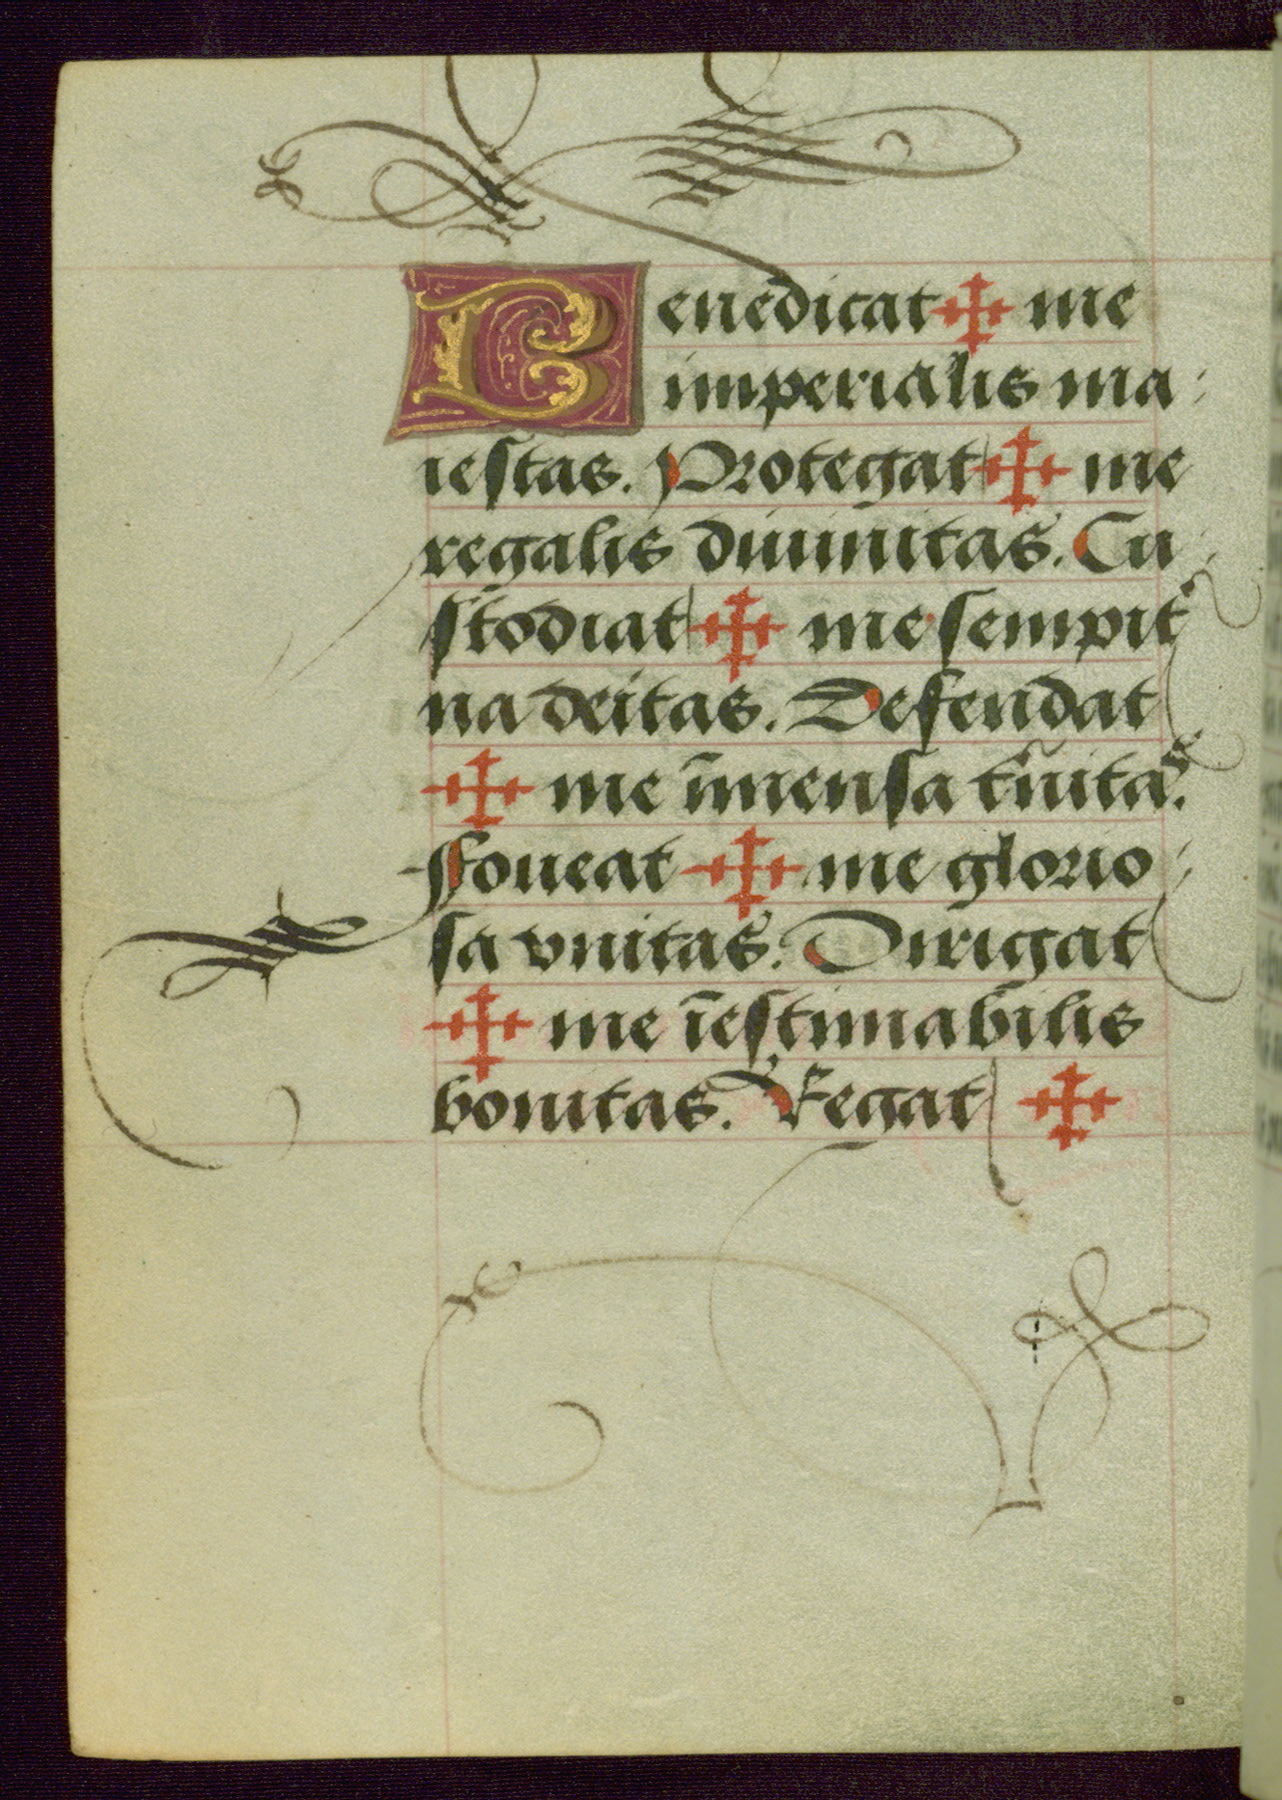 Benedicat ✠ me
imperialis ma
iestas. Protegat ✠ me
regalis diuinitas. Cu
stodiat ✠ me sempit͛
na deitas. Defendat
✠ me īmensa t͛nita⁹.
Foueat ✠ me glorio
sa vnitas. Dirigat
✠ me īestimabilis
bonitas. Regat ✠